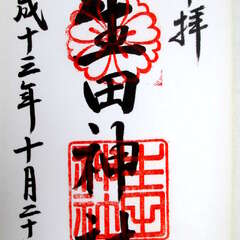 拝
生田神社
成十三年十月二十
生田神社